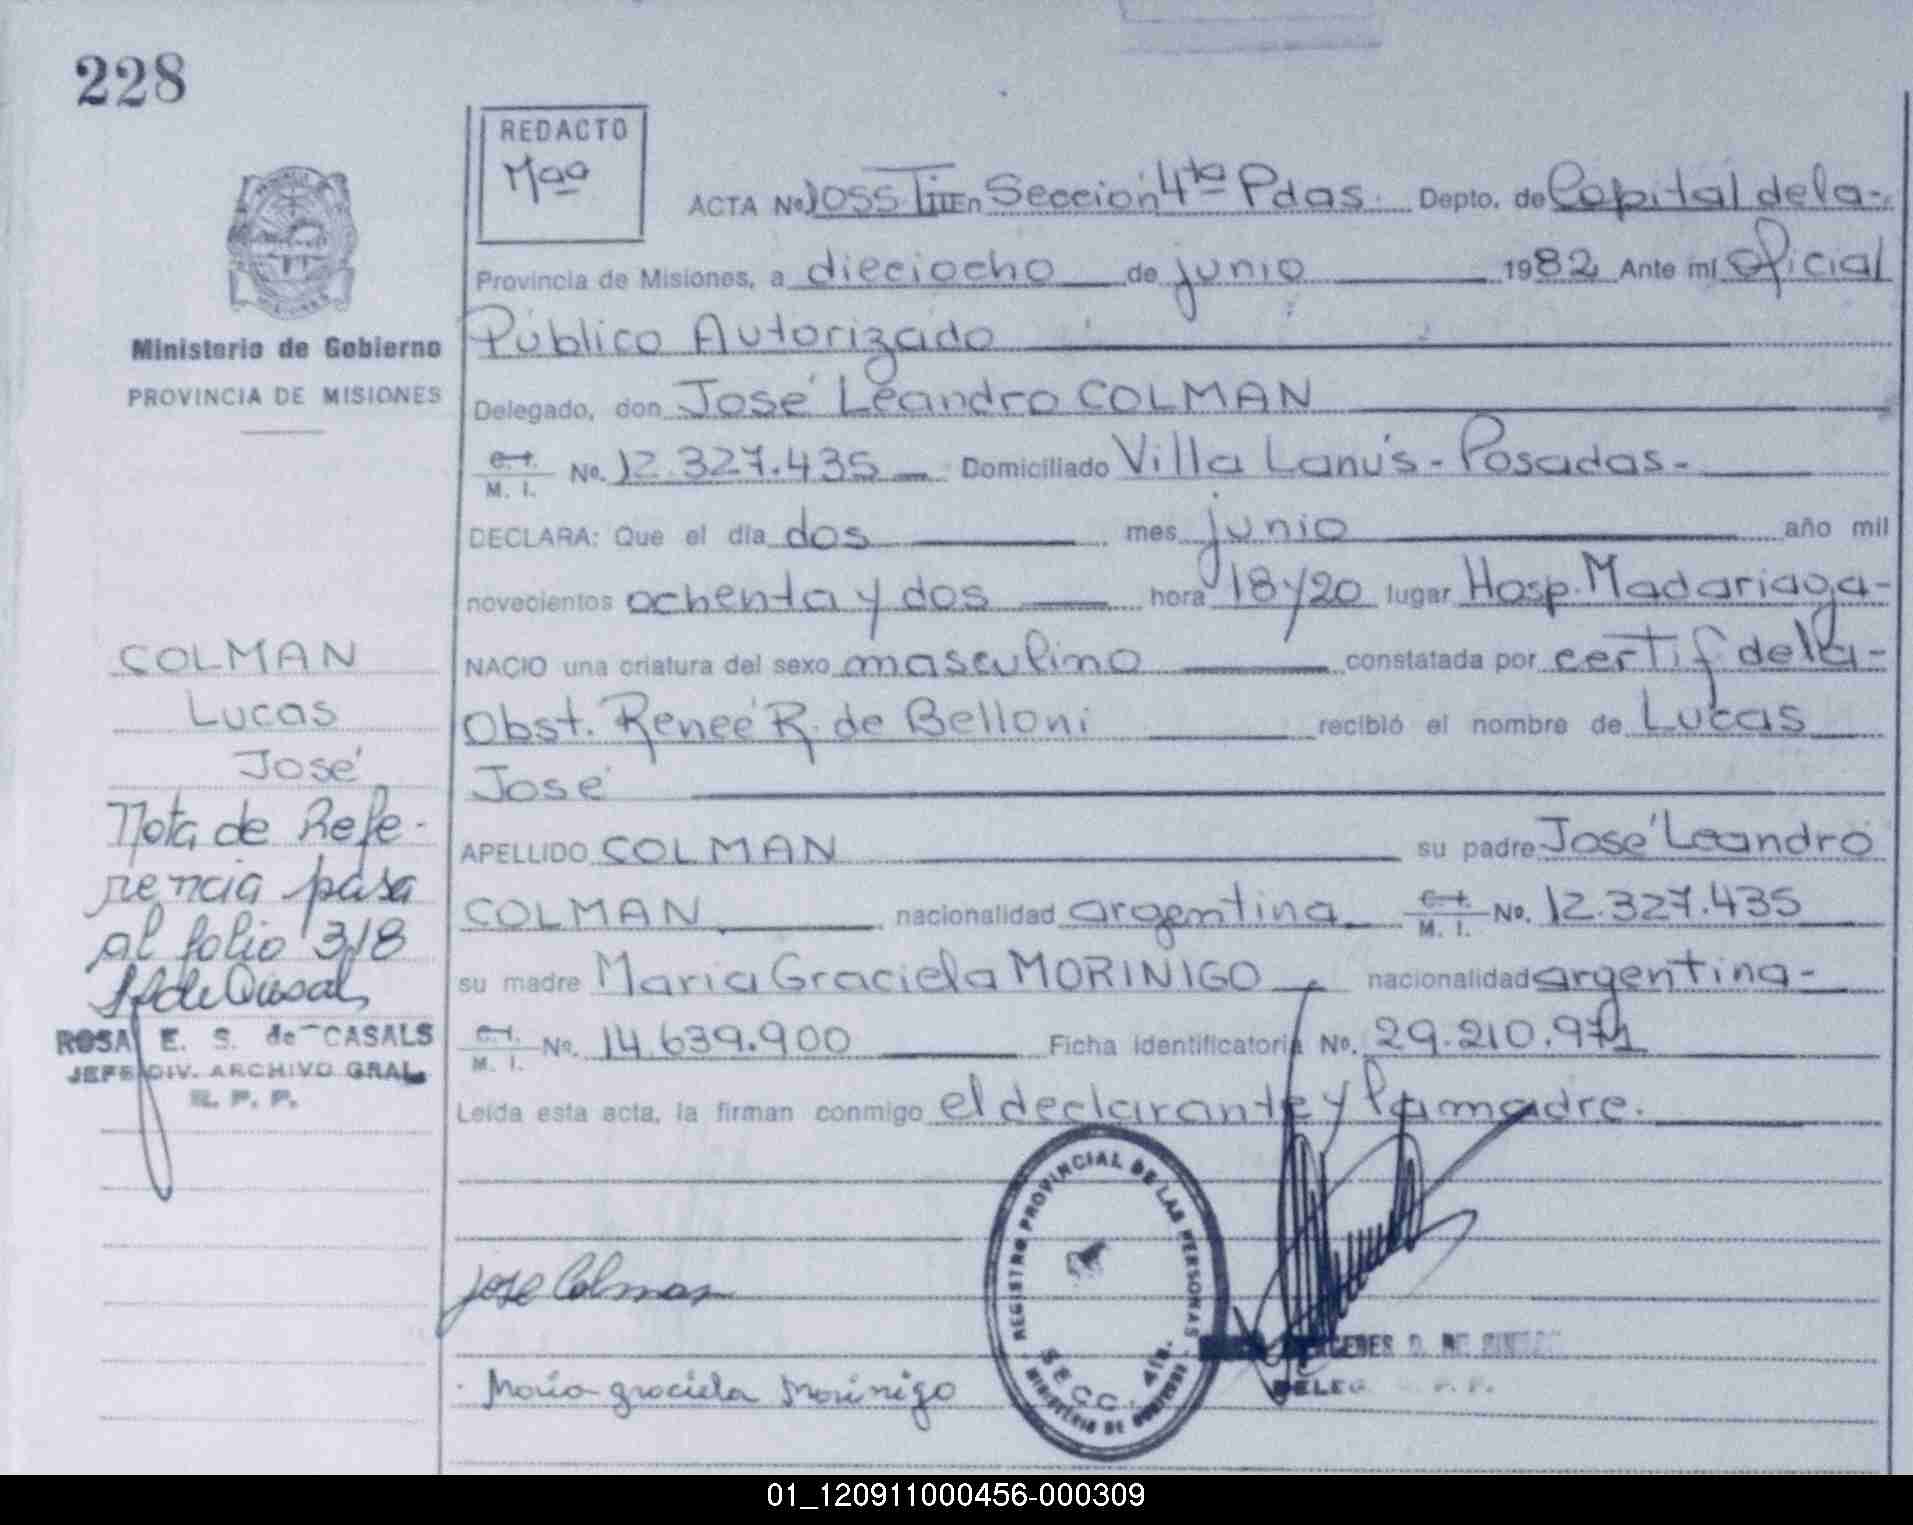 228
REDACTO
Mªª
ACTA No. 1055 TIII En Sección 4ta Pdas. Depto. de Capital de la-
Provincia de Misiones, a dieciocho de junio 1982 Ante mí Oficial
Público Autorizado
Delegado, don José Leandro COLMAN
C.I. M. I. No. 12.327.435 Domiciliado Villa Lanús - Posadas-
DECLARA: Que el día dos mes junio año mil
novecientos ochenta y dos hora 18y20 lugar Hosp. Madariaga-
NACIO una criatura del sexo masculino constatada por certif de la-
Obst. Renée R. de Belloni recibió el nombre de Lucas
José
APELLIDO COLMAN su padre José Leandro
COLMAN nacionalidad argentina C.I. M. I. No. 12.327.435
su madre Maria Graciela MORINIGO nacionalidad argentina-
C.I. M. I. No. 14.639.900 Ficha identificatoria No. 29.210.971
Leída esta acta, la firman conmigo el declarante y la madre.
Jose Colman
Maria graciela Morinigo
REGISTRO PROVINCIAL DE LAS PERSONAS
SECC. 4ta.
MINISTERIO DE GOBIERNO
DELEG. R. P. P.
Ministerio de Gobierno
PROVINCIA DE MISIONES
COLMAN
Lucas
José
Nota de Refe-
rencia pasa
al folio 318
ROSA E. S. de CASALS
JEFE DIV. ARCHIVO GRAL.
R. P. P.
01_120911000456-000309